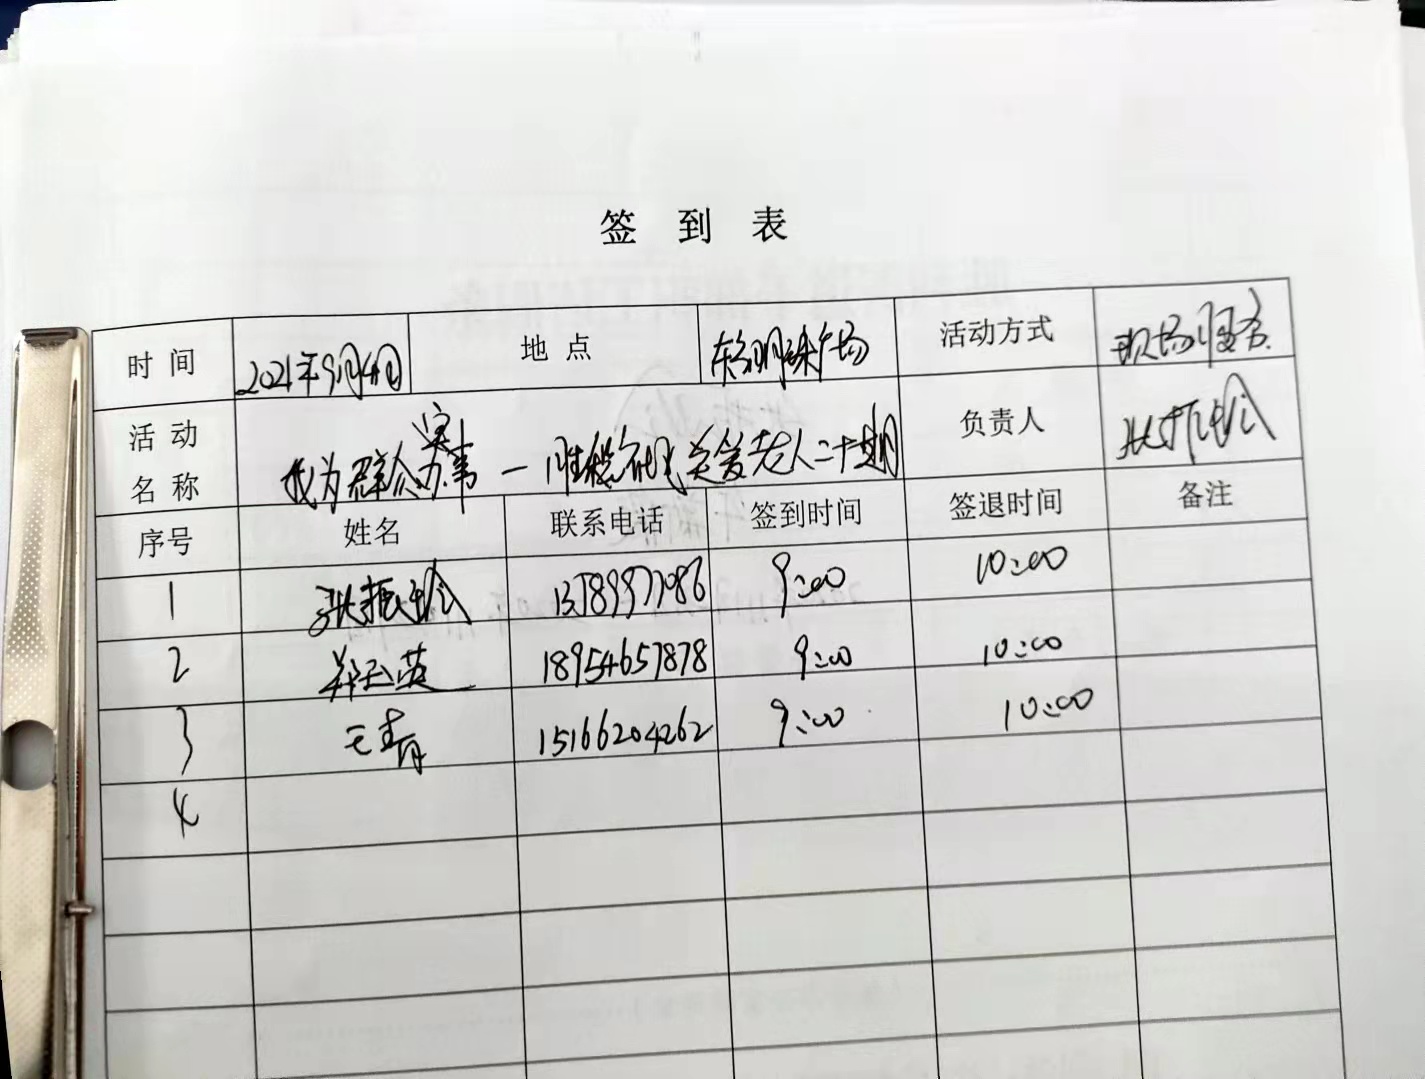 签到表
时间 2021年9月4日 地点 东方明珠广场 活动方式 现场服务
活动名称 我为群众办实事一胜 关爱老人二十期 负责人 张振玲
序号 姓名 联系电话 签到时间 签退时间 备注
1 张振玲 13789971086 9:00 10:00
2 郑玉英 18954657878 9:00 10:00
3 王青 15166204262 9:00 10:00
4